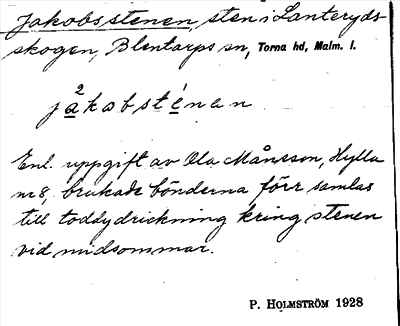 Jakobsstenen, sten i Lanteryds-
skogen, Blentarps sn, Torna hd, Malm. l.
2
jakobsténan
Enl. uppgift av Ola Månsson, Hylla
nr 8, brukade bönderna förr samlas
till toddydrickning kring stenen
vid midsommar.
P. HOLMSTRÖM 1928